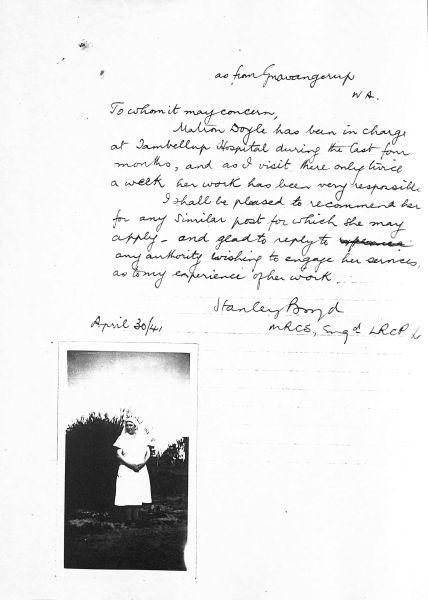 as from Gnowangerup
W A.
To whom it may concern,
Matron Doyle has been in charge
at Tambellup Hospital during the last four
months, and as I visit there only twice
a week her work has been very responsible
I shall be pleased to recommend her
for any similar post for which she may
apply - and glad to reply to
any authority wishing to engage her services,
as to my experience of her work.
Stanley Boyd
MRCS, Engd LRCP
April 30/41